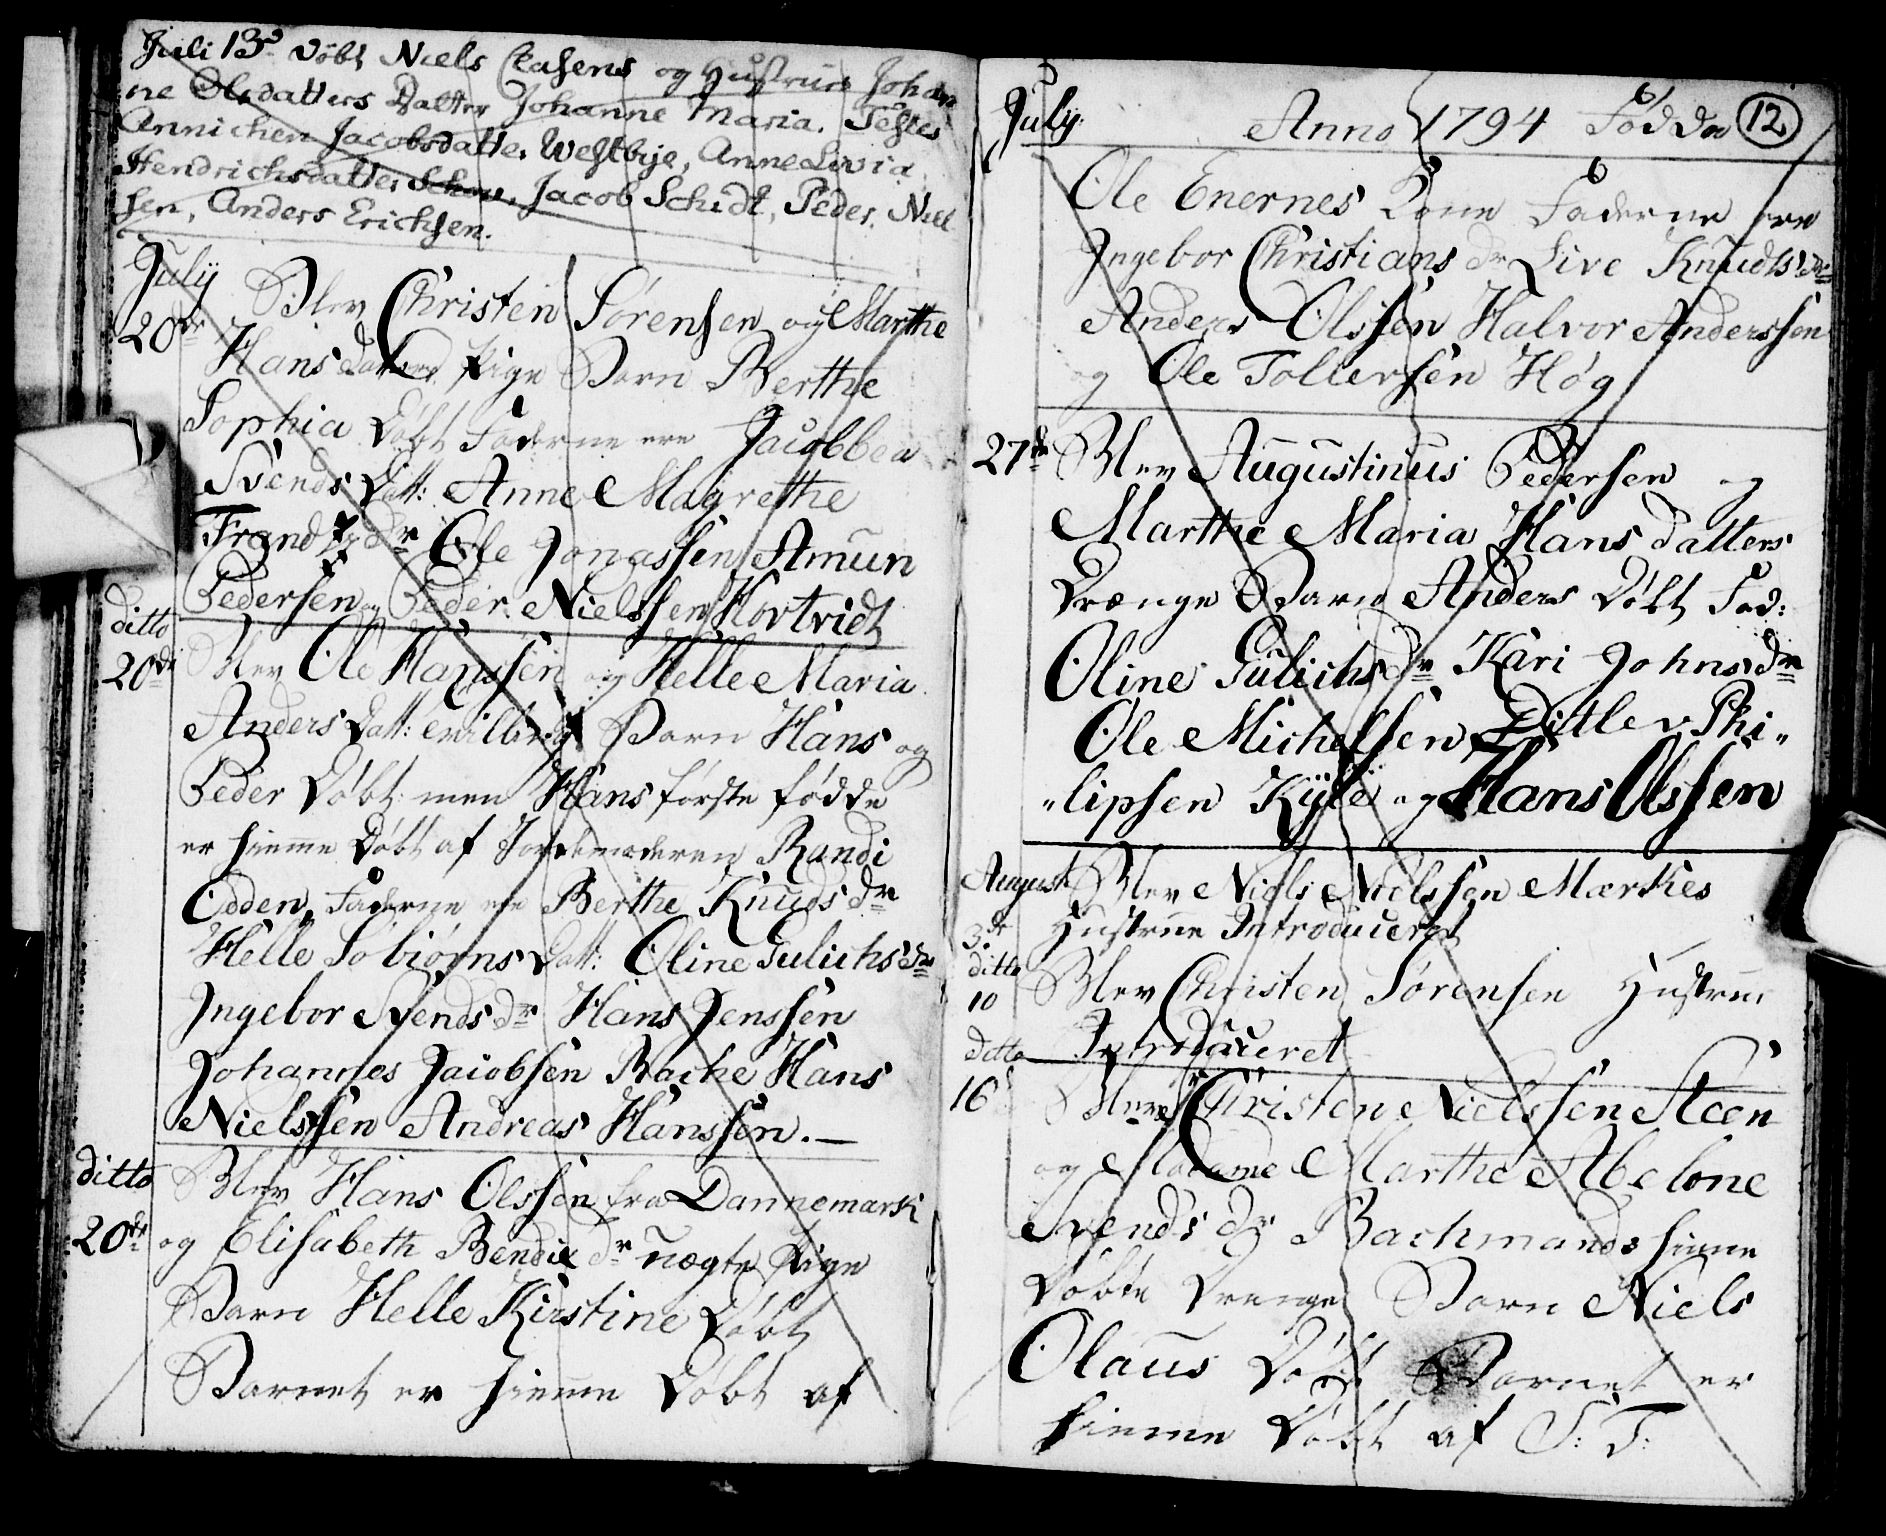 Juli 13d døbt Niels Clasens og Hustrue Johan
ne Olsdatters Datter Johanne Maria. Testes
Annichen Jacobsdatter Westbye, Anne Livia
Hendrichsdatter Jacob Schidt, Peder Niel
sen, Anders Erichsen.
July
20de Blev Christen Sørensen og Marthe
Hans datters Pige Barn Berthe
Sophia Døbt Fadderne ere Jacobbea
Svends Datt: Anne Magrethe
Trand dr Ole Jonassen Amun
Pedersen og Peder Nielssen Hortvidt
ditto
20de Blev Ole Hanssen og Helle Maria
Anders Datt: Barn Hans og
Peder Døbt men Hans første fødde
er hiemme Døbt af Jordemoderen Randi
Odden, Fadderne ere Berthe Knuds dr
Helle Tobiørns Datt: Oline Gulichs dr
Ingebor Svends dr Hans Jenssen
Johannes Jacobsen Bache Hans
Nielssen Andreas Hanssen.
ditto
20de Blev Hans Olssen fra Dannemark
og Elisabeth Bendix dr uægte Pige
Barn Helle Kirstine Døbt
Barnet er hiemme Døbt af
July Anno 1794 Fødde 12
Ole Enernes Kone Fadderne ere
Ingebor Christians dr Live Knuds dr
Anders Olssen Halvor Anderssen
og Ole Tollefsen Høg
27de Blev Augustinus Pedersen og
Marthe Maria Hans datters
Drænge Barn Anders Døbt Fad:
Oline Gulichs dr Kari Johns dr
Ole Michelsen Ditlev Phi„
„lipsen Kyle og Hans Olssen
August Blev Niels Nielssen Mærkes
3de Hustrue Introduceret
ditto
10 Blev Christen Sørensen Hustrue
Introduceret
ditto
16 Blev Christen Nielssen Steen
og Madame Marthe Abelone
Svends dr Bachmands hieme
Døbte Drenge Barn Niels
Olaus Døbt Barnet er
hieme Døbt af S: T: